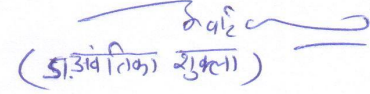 (डा. अवंतिका शुक्ला)